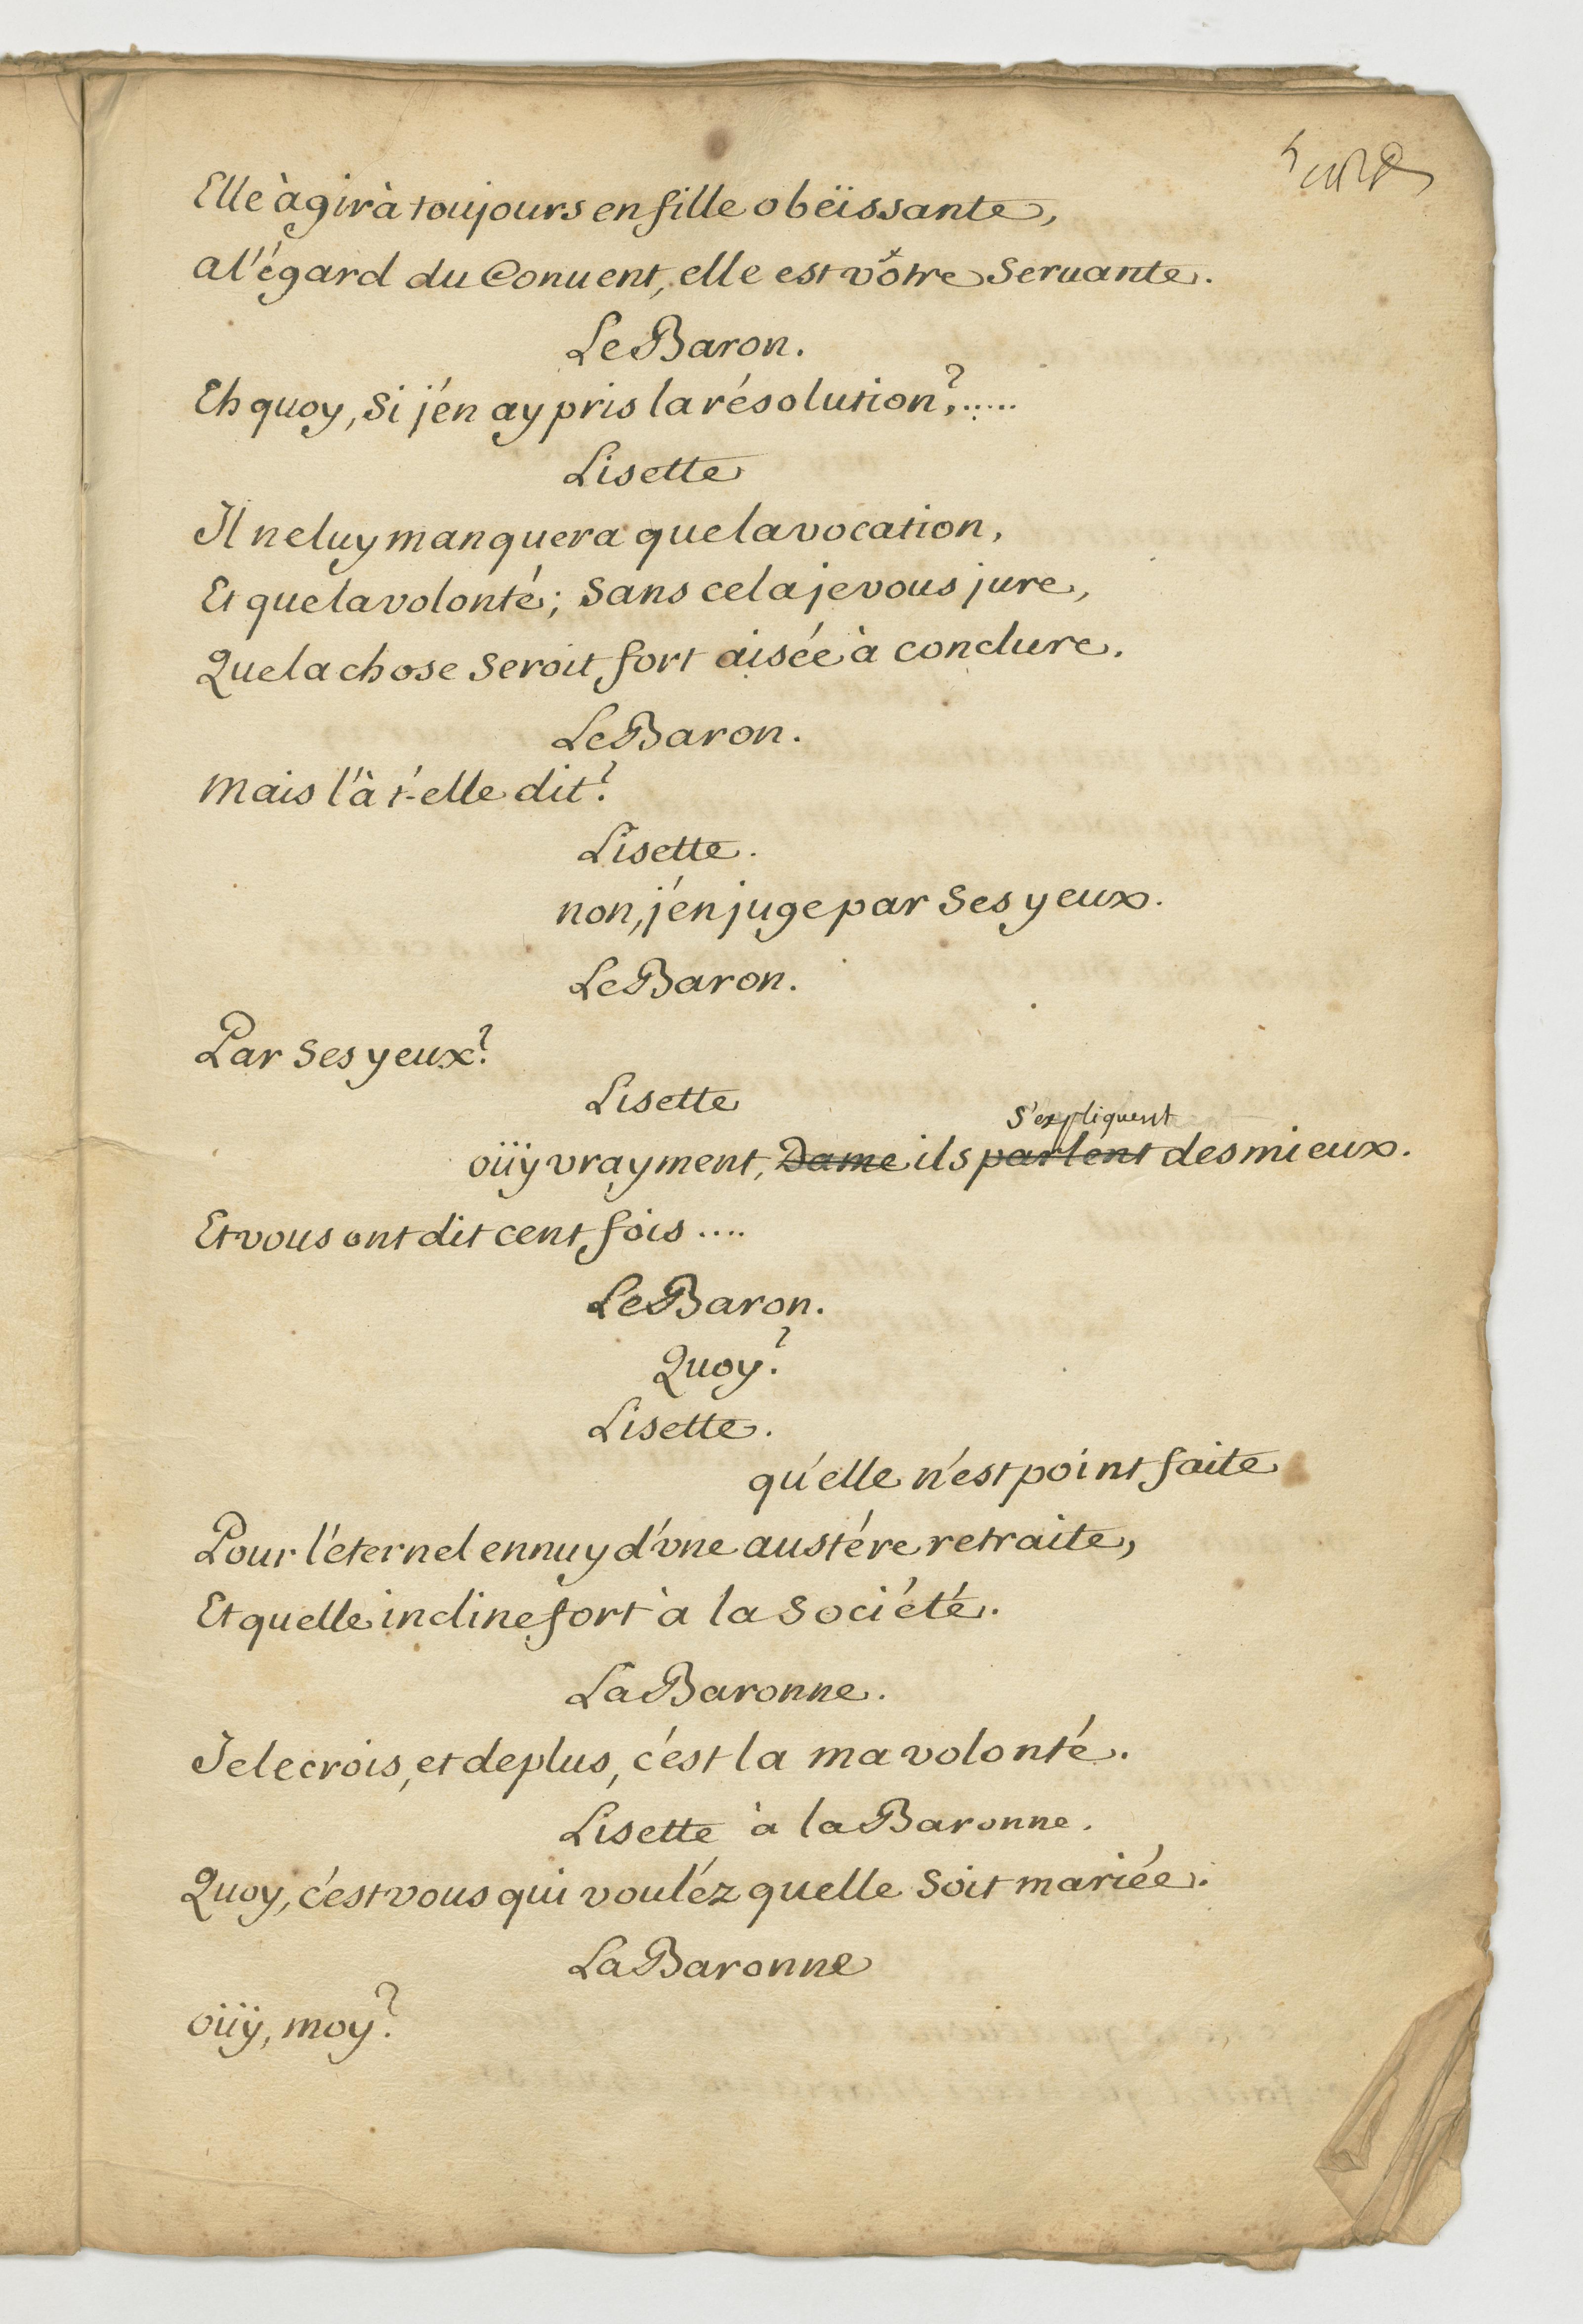 Elle àgirà toujours en fille obëissante,
a l'égard du Conuent, elle est vôtre Seruante.
Le Baron.
Eh quoy, Si j'en ay pris la résolution?.....
Lisette
Il ne luy manquera que la vocation,
Et que la volonté; Sans cela je vous jure,
Que la chose Seroit fort aisée à conclure.
Le Baron.
Mais l'à t-elle dit?
Lisette.
non, j'en juge par Ses yeux.
Le Baron.
Par Ses yeux?
Lisette
S'expliquent
oüy vrayment, Dame ils parlent des mieux.
Et vous ont dit cent fois ....
Le Baron.
Quoy?
Lisette.
qu'elle n'est point faite
Pour l'éternel ennuy d'vne austére retraite,
Et quelle incline fort à la Société.
La Baronne.
Je le crois, et de plus, c'est la ma volonté.
Lisette à la Baronne.
Quoy, c'est vous qui vouléz quelle Soit mariée.
La Baronne
oüy, moy?